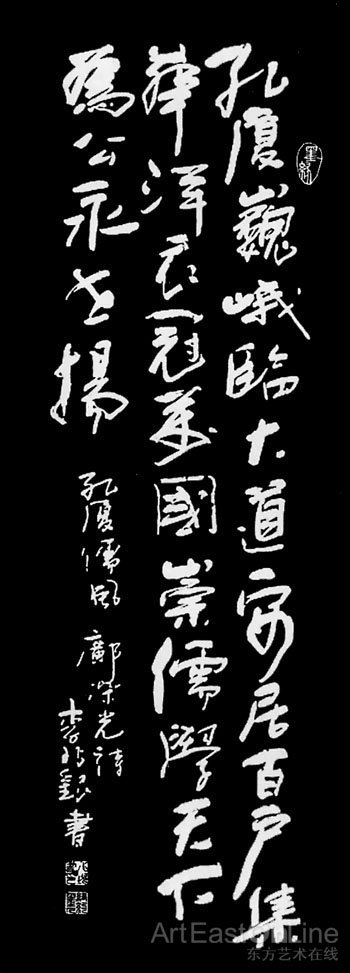 孔廈巍峨臨大道安居百戶集
華洋衣冠萬國崇儒學天下
爲公永世揚
孔廈儒風 鄺榮光詩
書
ArtEastOnLine
东方艺术在线